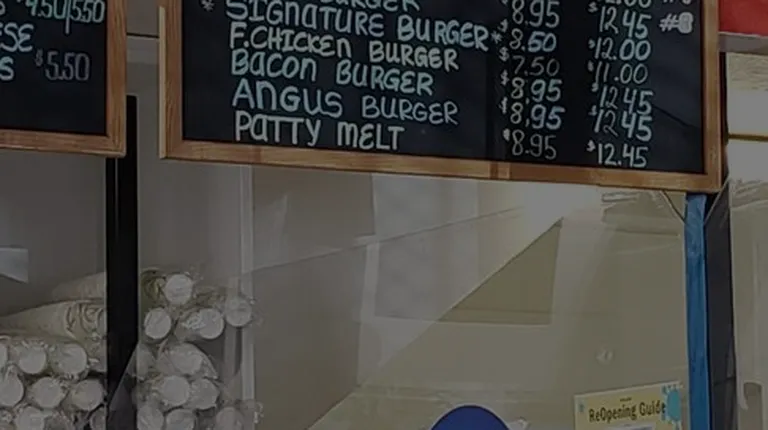 4.50/5.50
$5.50
BURGER
* SIGNATURE BURGER* $8.95 $12.45 #8
F.CHICKEN BURGER $8.50 $12.00
BACON BURGER $7.50 $11.00
ANGUS BURGER $8.95 $12.45
PATTY MELT $8.95 $12.45
$8.95 $12.45
ReOpening Guide